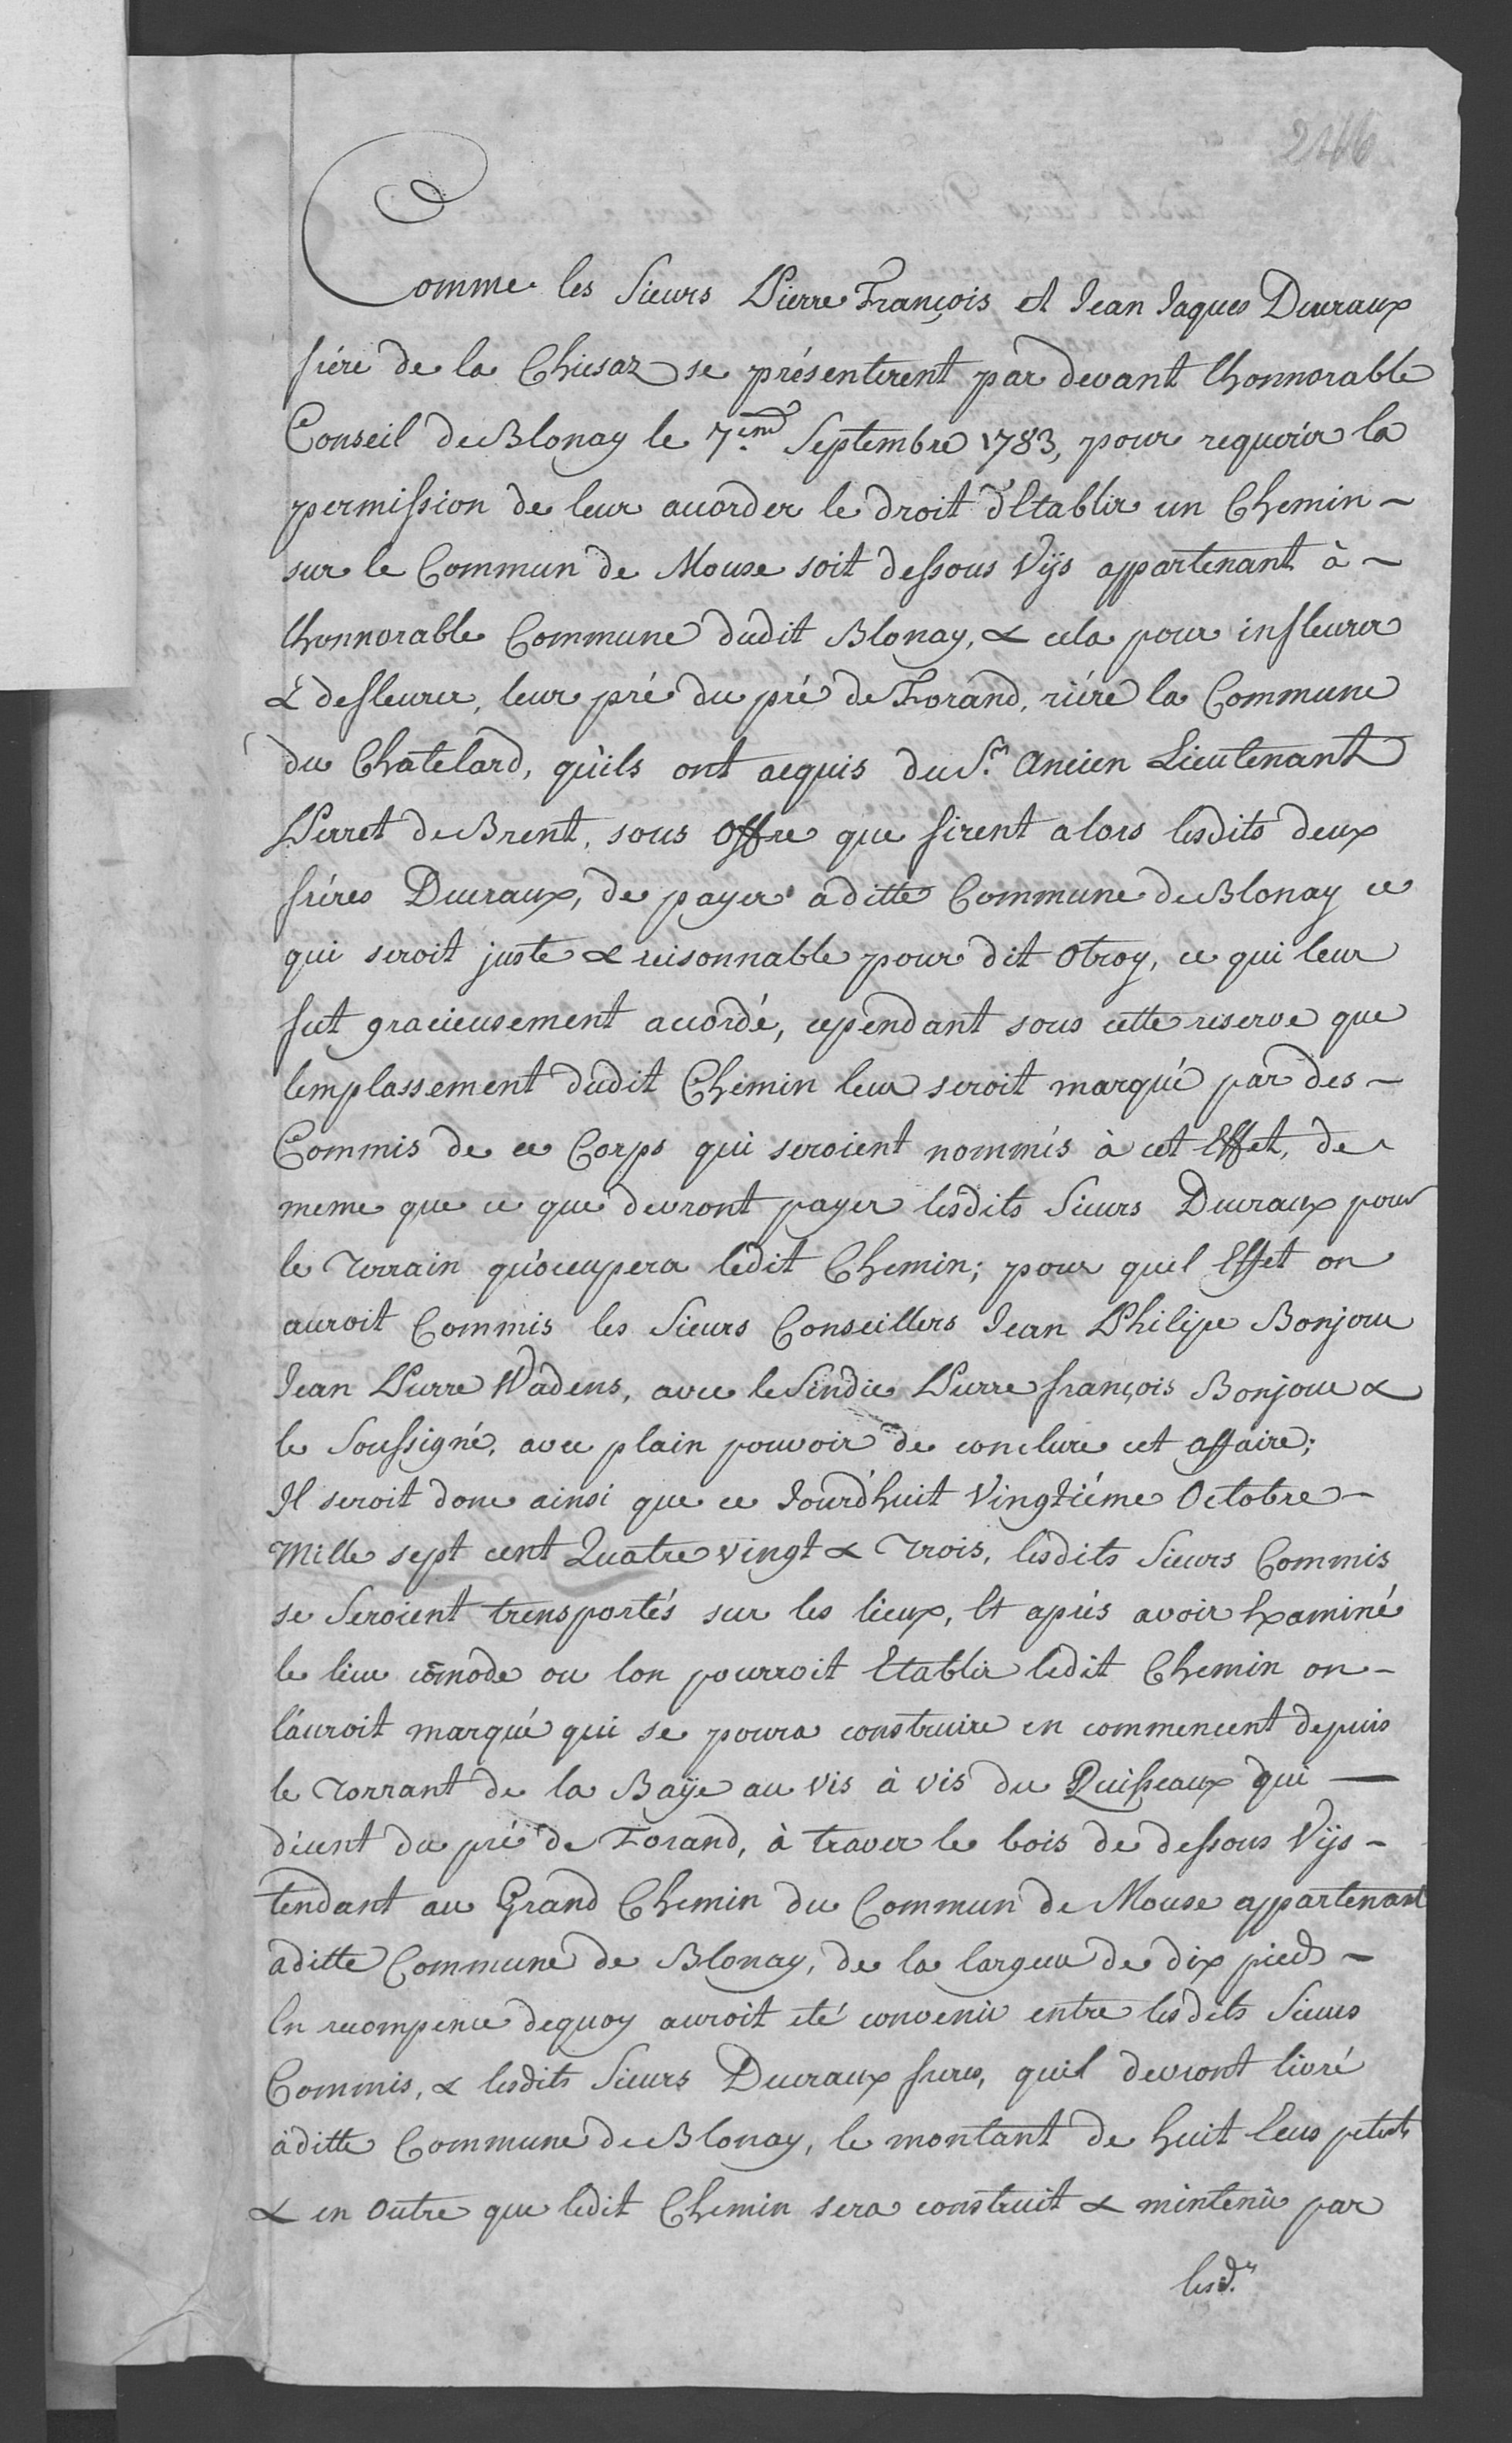 Comme les Sieurs Pierre François et Jean Jaques Ducraux
frére de la Chiesaz se présenterent par devant lhonnorable
Conseil de Blonay le 7.eme Septembre 1783, pour requerir la
permission de leur acorder le droit d'Etablir un Chemin -
sur le Commun de Mouse soit dessous Vijs appartenant à -
lhonnorable Commune dudit Blonay, & cela pour infleurer
& desfleurer, leur pré du pré de Forand, riére la Commune
du Chatelard, qu'ils ont acquis du Sr. Ancien Lieutenant
Perret de Brent, sous Offre que firent alors lesdits deux
fréres Ducraux, de payer a ditte Commune de Blonay ce
qui seroit juste & reisonnable pour dit Otroy, ce qui leur
fut gracieusement acordé, cependant sous cette reserve que
lemplassement dudit Chemin leur seroit marqué par des -
Commis de ce Corps qui seroient nommés à cet Effet, de
meme que ce que devront payer lesdits Sieurs Ducraux pour
le Terrain qu'ocupera ledit Chemin; pour quel Effet on
auroit Commis les Sieurs Conseillers Jean Philipe Bonjour
Jean Pierre Wadens, avec le Sindic Pierre françois Bonjour &
le Soussigné, avec plain pouvoir de conclure cet affaire;
Il seroit donc ainsi que ce Jourd'huit Vingtiéme Octobre -
Mille sept cent Quatre vingt & Trois, lesdits Sieurs Commis
se Seroient trensportés sur les lieux, Et aprés avoir Examiné
le lieu com̄ode ou lon pourroit Etablir ledit Chemin on -
l'auroit marqué qui se poura construire en commencent depuis
le Torrant de la Baÿe au vis à vis du Ruisseaux qui -
décent du pré de Forand, à traver le bois de dessous Vijs -
tendant au Grand Chemin du Commun de Mouse appartenant
a ditte Commune de Blonay, de la largeur de dix pieds -
En recompence dequoy auroit eté convenu entre lesdits Sieurs
Commis, & lesdits Sieurs Ducraux freres, quil devront livré
à ditte Commune de Blonay, le montant de huit Ecus petits
& en outre que ledit Chemin sera construit & mintenû par
lesd.ts